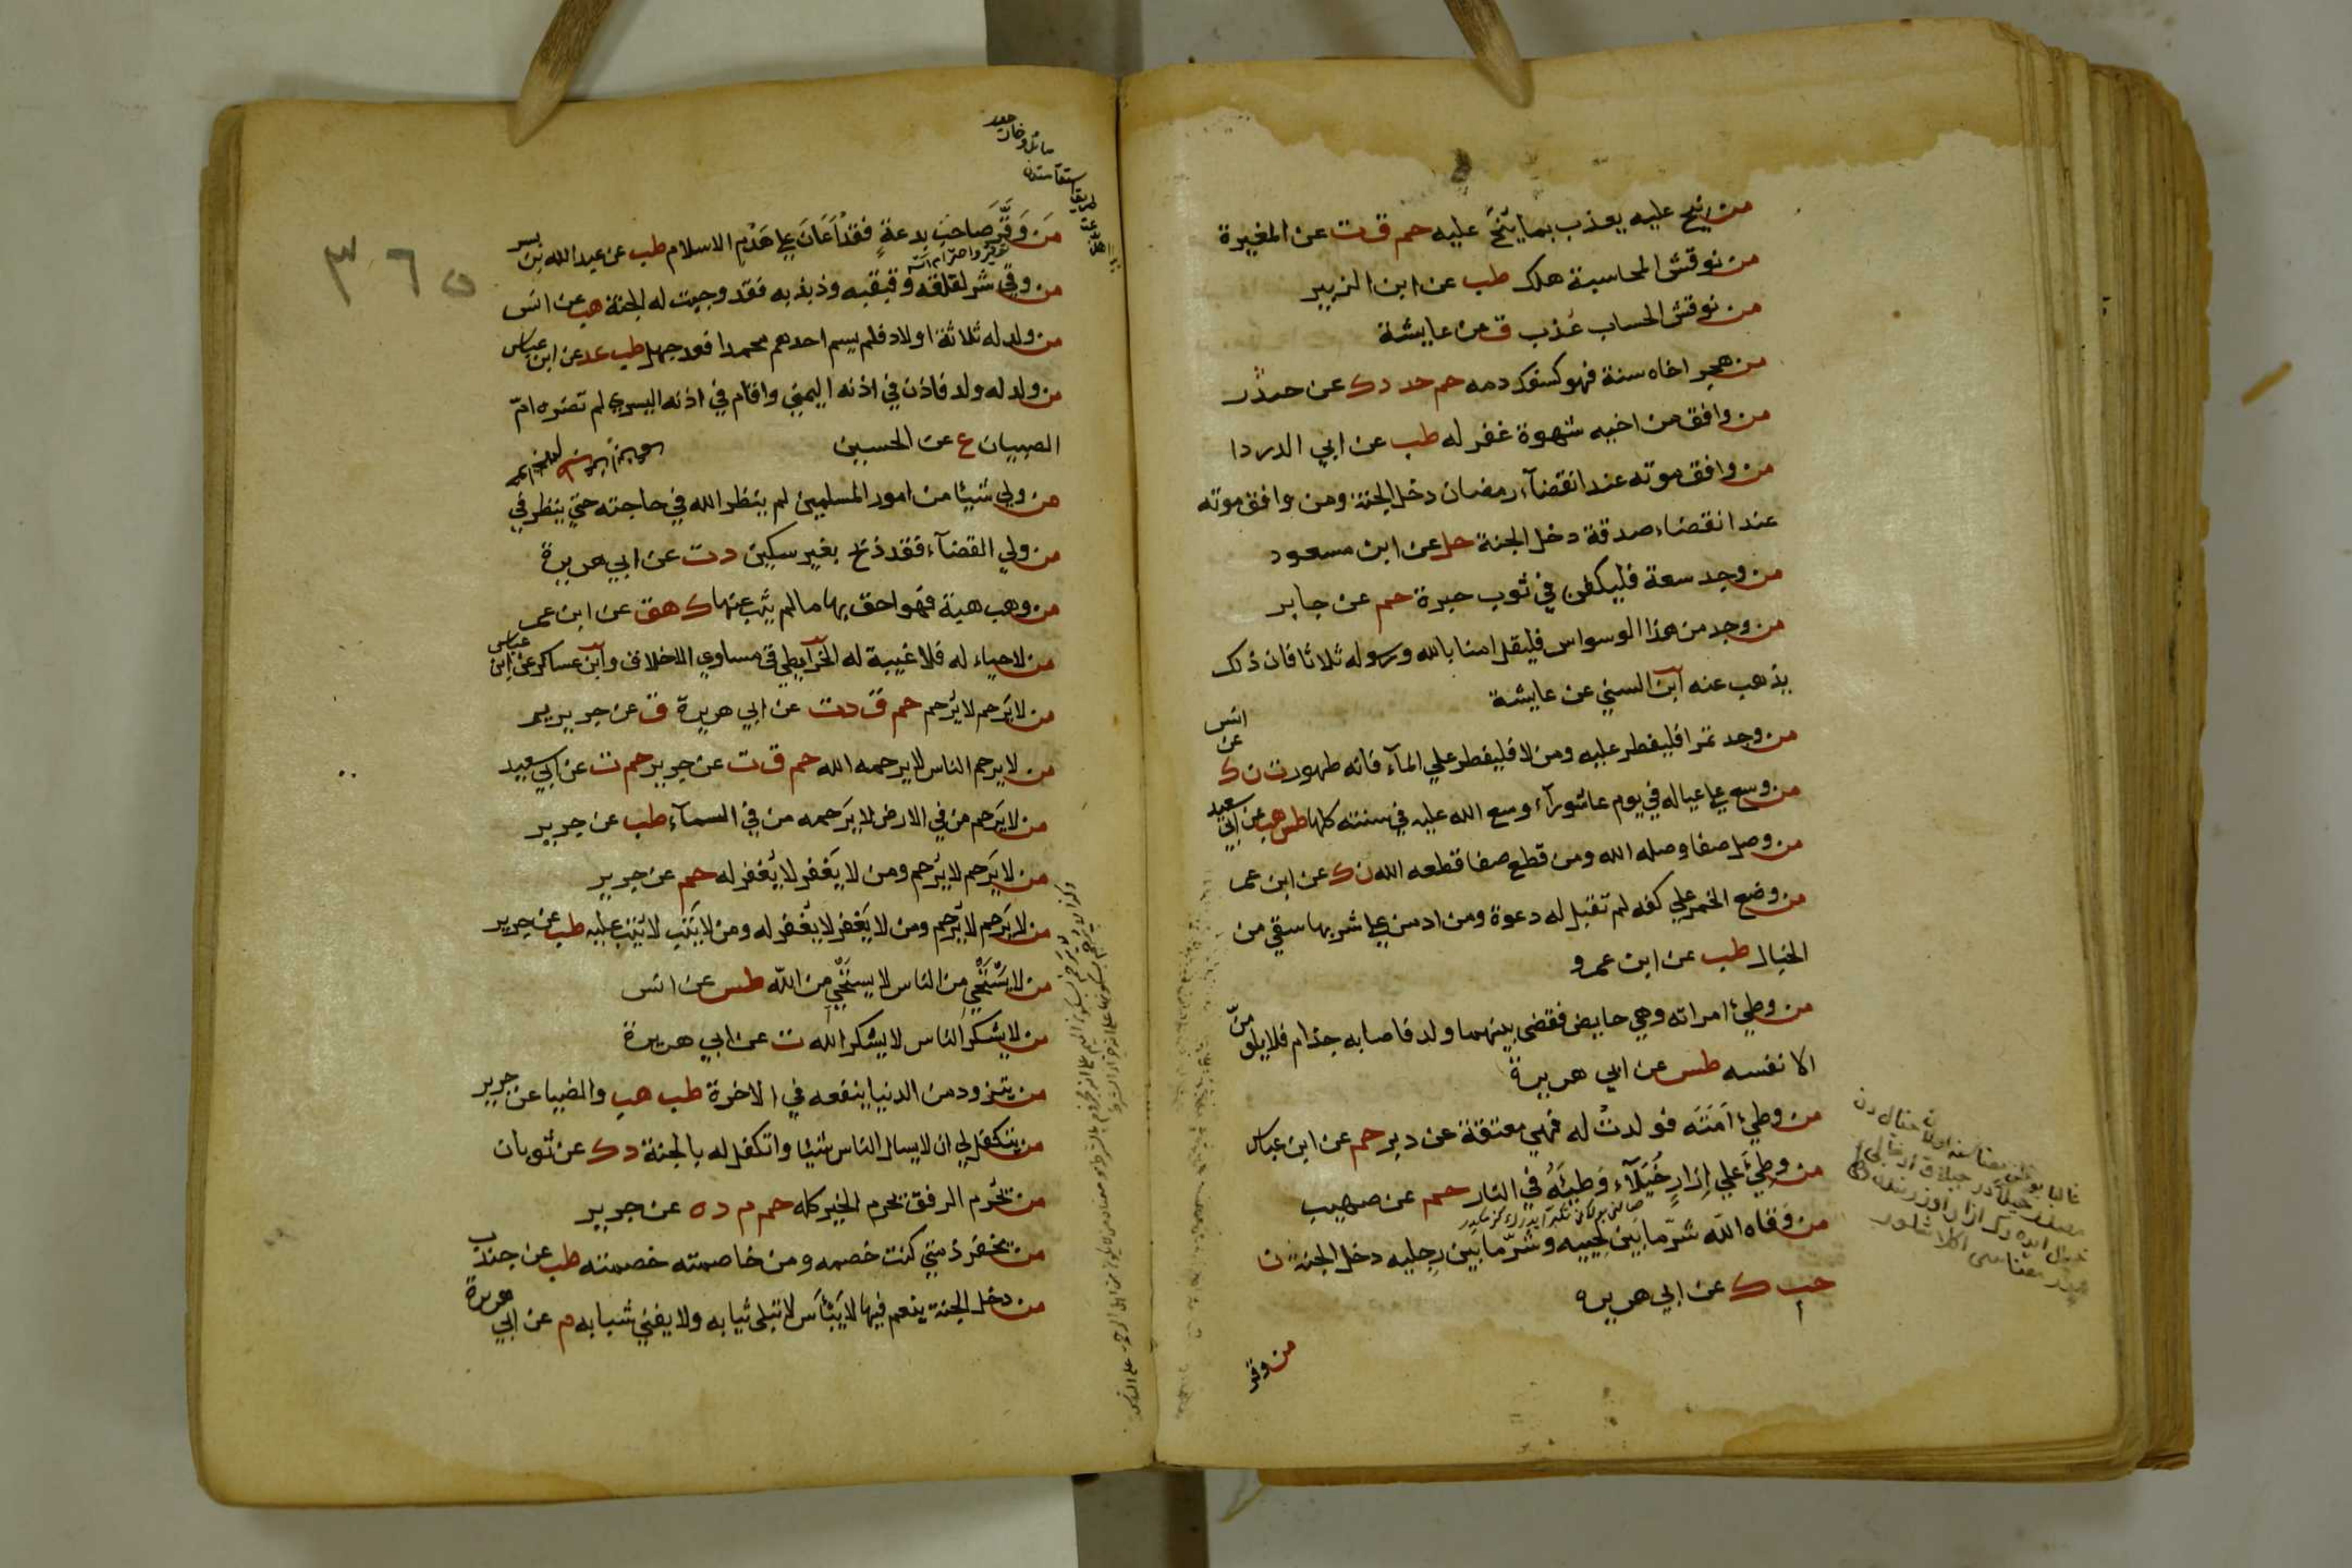 من نيح عليه يعذب بما ينح عليه حم ق ت عن المغيرة
من نوقش المحاسبة هلك طب عن ابن الزبير
من نوقش الحساب عذب ق عن عايشة
من هجر اخاه سنة فهو كسفك دمه حم خد د ك عن حدرد
من وافق من اخيه شهوة غفر له طب عن ابي الدردا
من وافق موته عند انقضآء رمضان دخل الجنة ومن وافق موته
عند انقضاء صدقة دخل الجنة حل عن ابن مسعود
من وجد سعة فليكفن في ثوب حبرة حم عن جابر
من وجد من هذا الوسواس فليقل امنا بالله ورسوله ثلاثا فان ذلك
يذهب عنه ابن السني عن عايشة
من وجد تمرا فليفطر عليه ومن لا فليفطر علي المآء فانه طهور ت ن ك عن انس
من وسع علي عياله في يوم عاشورآء وسع الله عليه في سنته كلها طس هب عن ابي سعيد
من وصل صفا وصله الله ومن قطع صفا قطعه الله ن ك عن ابن عمر
من وضع الخمر علي كفه لم تقبل له دعوة ومن ادمن علي شربها سقي من
الخبال طب عن ابن عمرو
من وطئ امراته وهي حايض فقضي بينهما ولد فاصابه جذام فلا يلومنّ
الا نفسه طس عن ابي هريرة
من وطئ اَمَتَه فولدتْ له فهي معتقة عن دبر حم عن ابن عباس
من وطئَ علي اِزارٍ خُيَلآءَ وَطِئَهُ في النار حم عن صهيب
من وَقاه اللّه شرّ ما بَين لَحييه وشرّ ما بَين رِجليه دخل الجنة ت
حب ك عن ابي هريره
من وقر
٣٦٥
مَن وَقَّرَ صَاحِبَ بِدعةٍ فقد اَعَانَ علي هَدْمِ الاسلام طب عن عبد الله بن بسر
من وقي شر لقلقه وقبقبه وذبذبه فقد وجبت له الجنة هب عن انس
من ولد له ثلاثة اولاد فلم يسم احدهم محمدا فقد جهل طب عد عن ابن عباس
من ولد له ولد فاذن في اذنه اليمني واقام في اذنه اليسري لم تضره امّ
الصبيان ع عن الحسين
من ولي شيئا من امور المسلمين لم ينظر الله في حاجته حتي ينظر في
من ولي القضآء فقد ذبح بغير سكين د ت عن ابي هريرة
من وهب هبة فهو احق بها ما لم يثب عنها ك هق عن ابن عمر
من لا حياء له فلا غيبة له الخرآيطي في مساوي الاخلاق وابن عساكر عن ابن عباس
من لا يَرحم لا يُرحم حم ق د ت عن ابي هريرة ق عن جرير
من لا يرحم الناس لا يرحمه الله حم ق ت عن جرير حم ت عن ابي سعيد
من لا يَرحم من في الارض لا يَرحمه من في السمآء طب عن جرير
من لا يَرحم لا يُرحم ومن لا يَغفر لا يُغفر له حم عن جرير
من لا يَرحم لا يُرحم ومن لا يَغفر لا يُغفر له ومن لا يَتب لا يُتب عليه طب عن جرير
من لا يستَحْيِ من الناس لا يستَحْيِ من اللّه طس عن انس
من لا يشكر الناس لا يشكر اللّه ت عن ابي هريرة
من يتزود من الدنيا ينفعه في الاخرة طب هب والضيا عن جرير
من يتكفل لي ان لا يسال الناس شيئا واتكفل له بالجنة د ك عن ثوبان
من يحُرم الرفق يحرم الخير كله حم م د ه عن جرير
من يخفر ذمتي كنت خصمه ومن خاصمته خصمته طب عن جندب
من دخل الجنة ينعم فيها لا يَبْأَس لا تبلى ثيابه ولا يفني شبابه م عن ابي هريرة